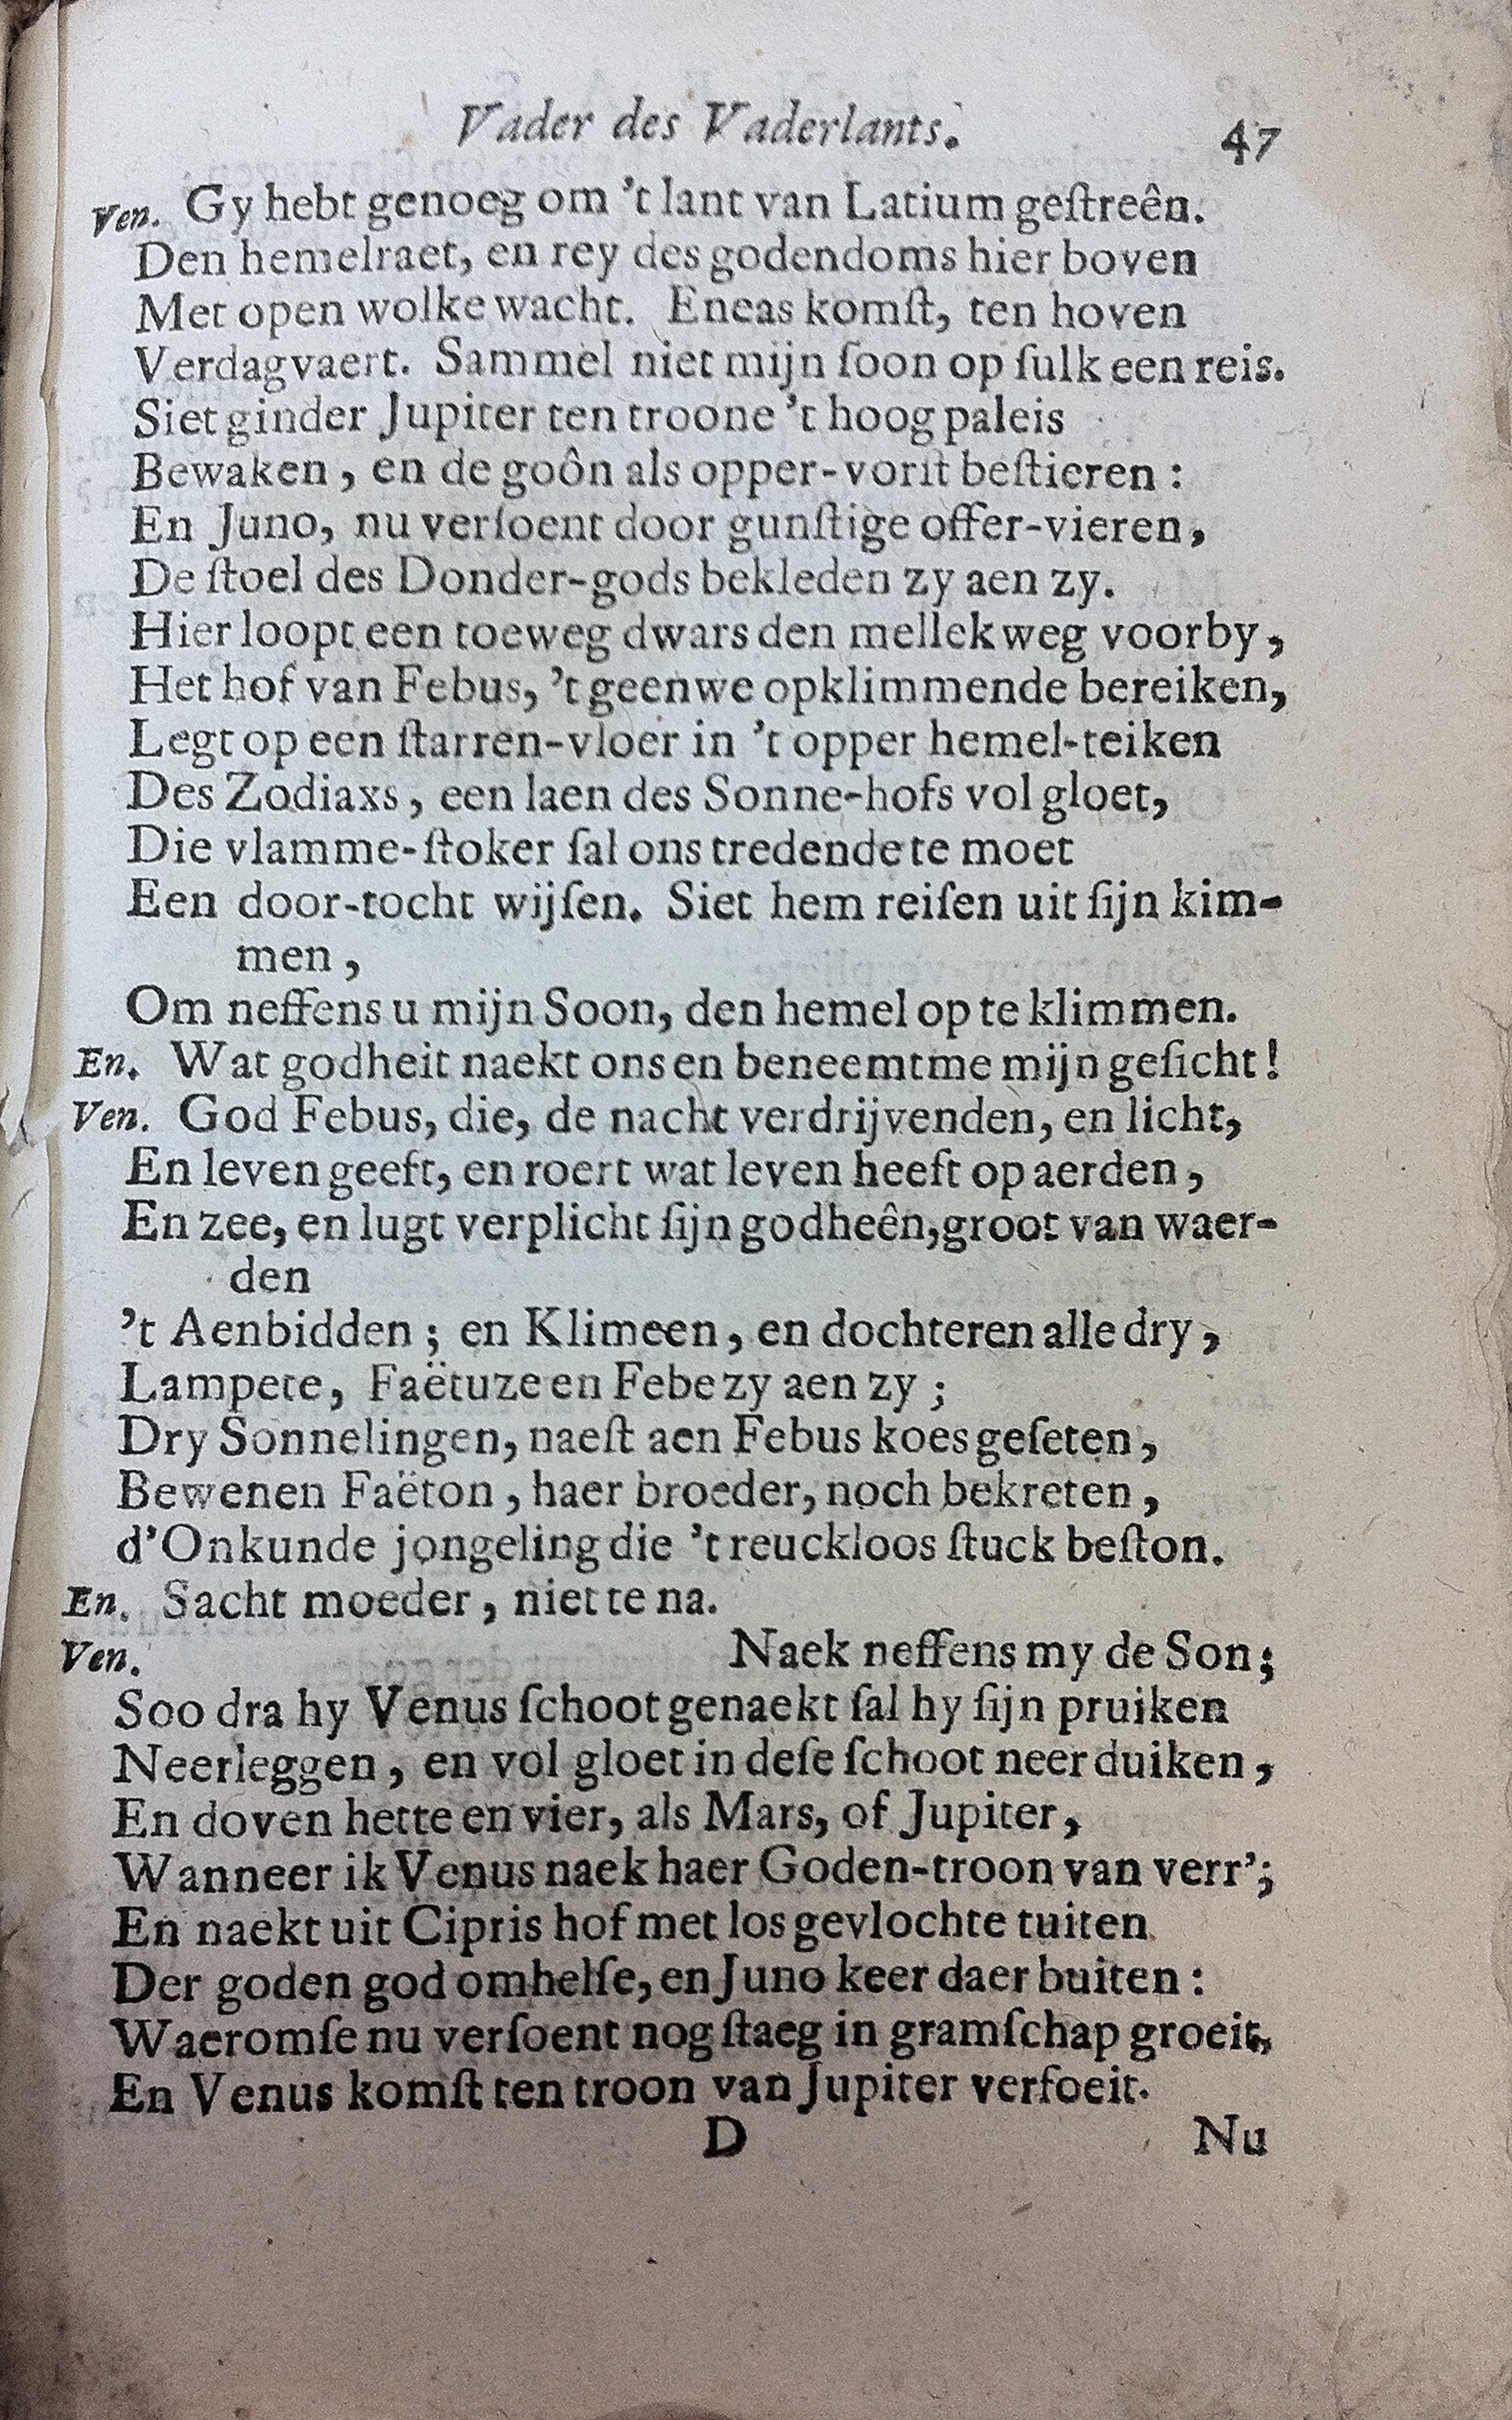 Vader des Vaderlants. 47
Ven. Gy hebt genoeg om 't lant van Latium geſtreên.
Den hemelraet, en rey des godendoms hier boven
Met open wolke wacht. Eneas komſt, ten hoven
Verdagvaert. Sammel niet mijn ſoon op ſulk een reis.
Siet ginder Jupiter ten troone 't hoog paleis
Bewaken, en de goôn als opper-vorſt beſtieren:
En Juno, nu verſoent door gunſtige offer-vieren,
De ſtoel des Donder-gods bekleden zy aen zy.
Hier loopt een toeweg dwars den mellekweg voorby,
Het hof van Febus, 't geen we opklimmende bereiken,
Legt op een ſtarren-vloer in 't opper hemel-teiken
Des Zodiaxs, een laen des Sonne-hofs vol gloet,
Die vlamme-ſtoker ſal ons tredende te moet
Een door-tocht wijſen. Siet hem reiſen uit ſijn kim-
men,
Om neffens u mijn Soon, den hemel op te klimmen.
En. Wat godheit naekt ons en beneemt me mijn geſicht!
Ven. God Febus, die, de nacht verdrijvenden, en licht,
En leven geeft, en roert wat leven heeft op aerden,
En zee, en lugt verplicht ſijn godheên, groot van waer-
den
't Aenbidden; en Klimeen, en dochteren alle dry,
Lampete, Faëtuze en Febe zy aen zy;
Dry Sonnelingen, naeſt aen Febus koes geſeten,
Bewenen Faëton, haer broeder, noch bekreten,
d'Onkunde jongeling die 't reuckloos ſtuck beſton.
En. Sacht moeder, niet te na.
Ven. Naek neffens my de Son;
Soo dra hy Venus ſchoot genaekt ſal hy ſijn pruiken
Neerleggen, en vol gloet in deſe ſchoot neer duiken,
En doven hette en vier, als Mars, of Jupiter,
Wanneer ik Venus naek haer Goden-troon van verr';
En naekt uit Cipris hof met los gevlochte tuiten
Der goden god omhelſe, en Juno keer daer buiten:
Waeromſe nu verſoent nog ſtaeg in gramſchap groeit,
En Venus komſt ten troon van Jupiter verfoeit.
D Nu